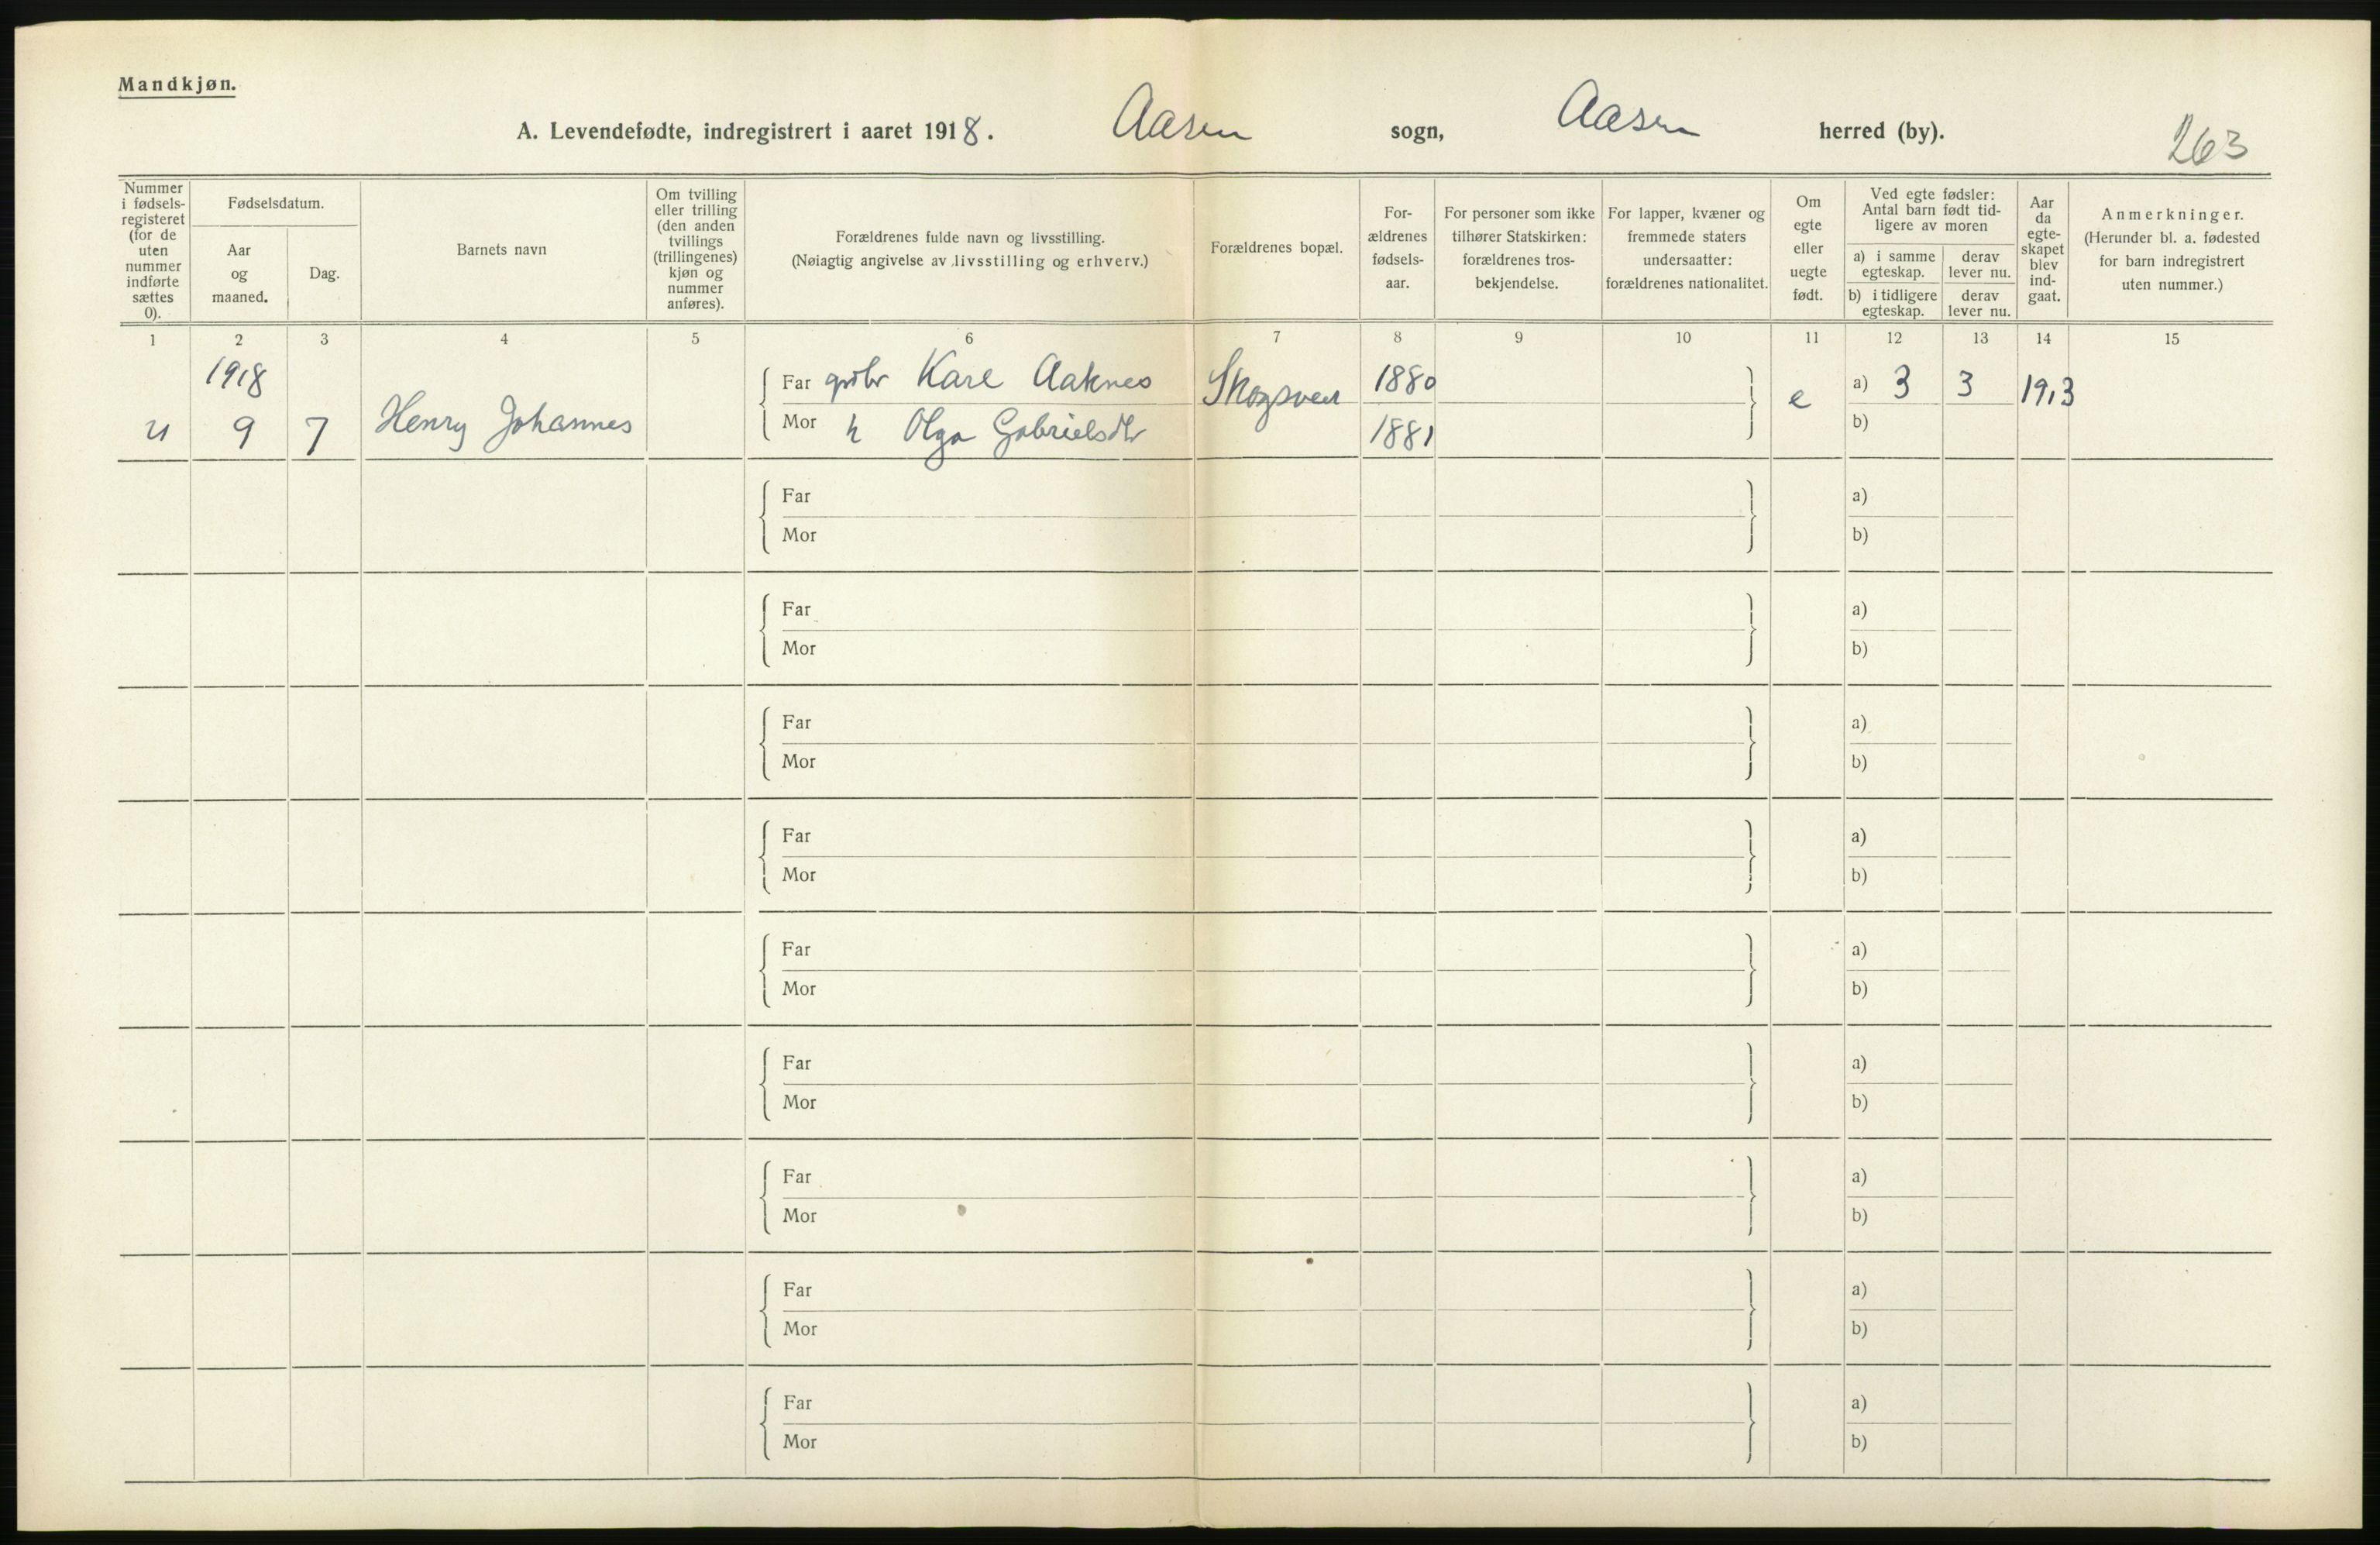 Mandkjøn.
A. Levendefødte, indregistrert i aaret 1918. Aasen sogn, Aasen herred (by).
263
Nummer i fødsels-registeret (for de uten nummer indførte sættes 0).
Fødselsdatum.
Aar og maaned.
Dag.
Barnets navn
Om tvilling eller trilling (den anden tvillings (trillingenes) kjøn og nummer anføres).
Forældrenes fulde navn og livsstilling.
(Nøiagtig angivelse av livsstilling og erhverv.)
Forældrenes bopæl.
For-ældrenes fødsels-aar.
For personer som ikke tilhører Statskirken: forældrenes tros-bekjendelse.
For lapper, kvæner og fremmede staters undersaatter: forældrenes nationalitet.
Om egte eller uegte født.
Ved egte fødsler: Antal barn født tid-ligere av moren
a) i samme egteskap.
derav lever nu.
b) i tidligere egteskap.
derav lever nu.
Aar da egte-skapet blev ind-gaat.
Anmerkninger.
(Herunder bl. a. fødested for barn indregistrert uten nummer.)
1 2 3 4 5 6 7 8 9 10 11 12 13 14 15
1918
Far Karl Aaknes 1880 a) 3 3 1913
9 7 Henry Johannes e
Mor h Olga Gabrielsdtr 1881 b)
Far a)
Mor b)
Far a)
Mor b)
Far a)
Mor b)
Far a)
Mor b)
Far a)
Mor b)
Far a)
Mor b)
Far a)
Mor b)
Far a)
Mor b)
Far a)
Mor b)